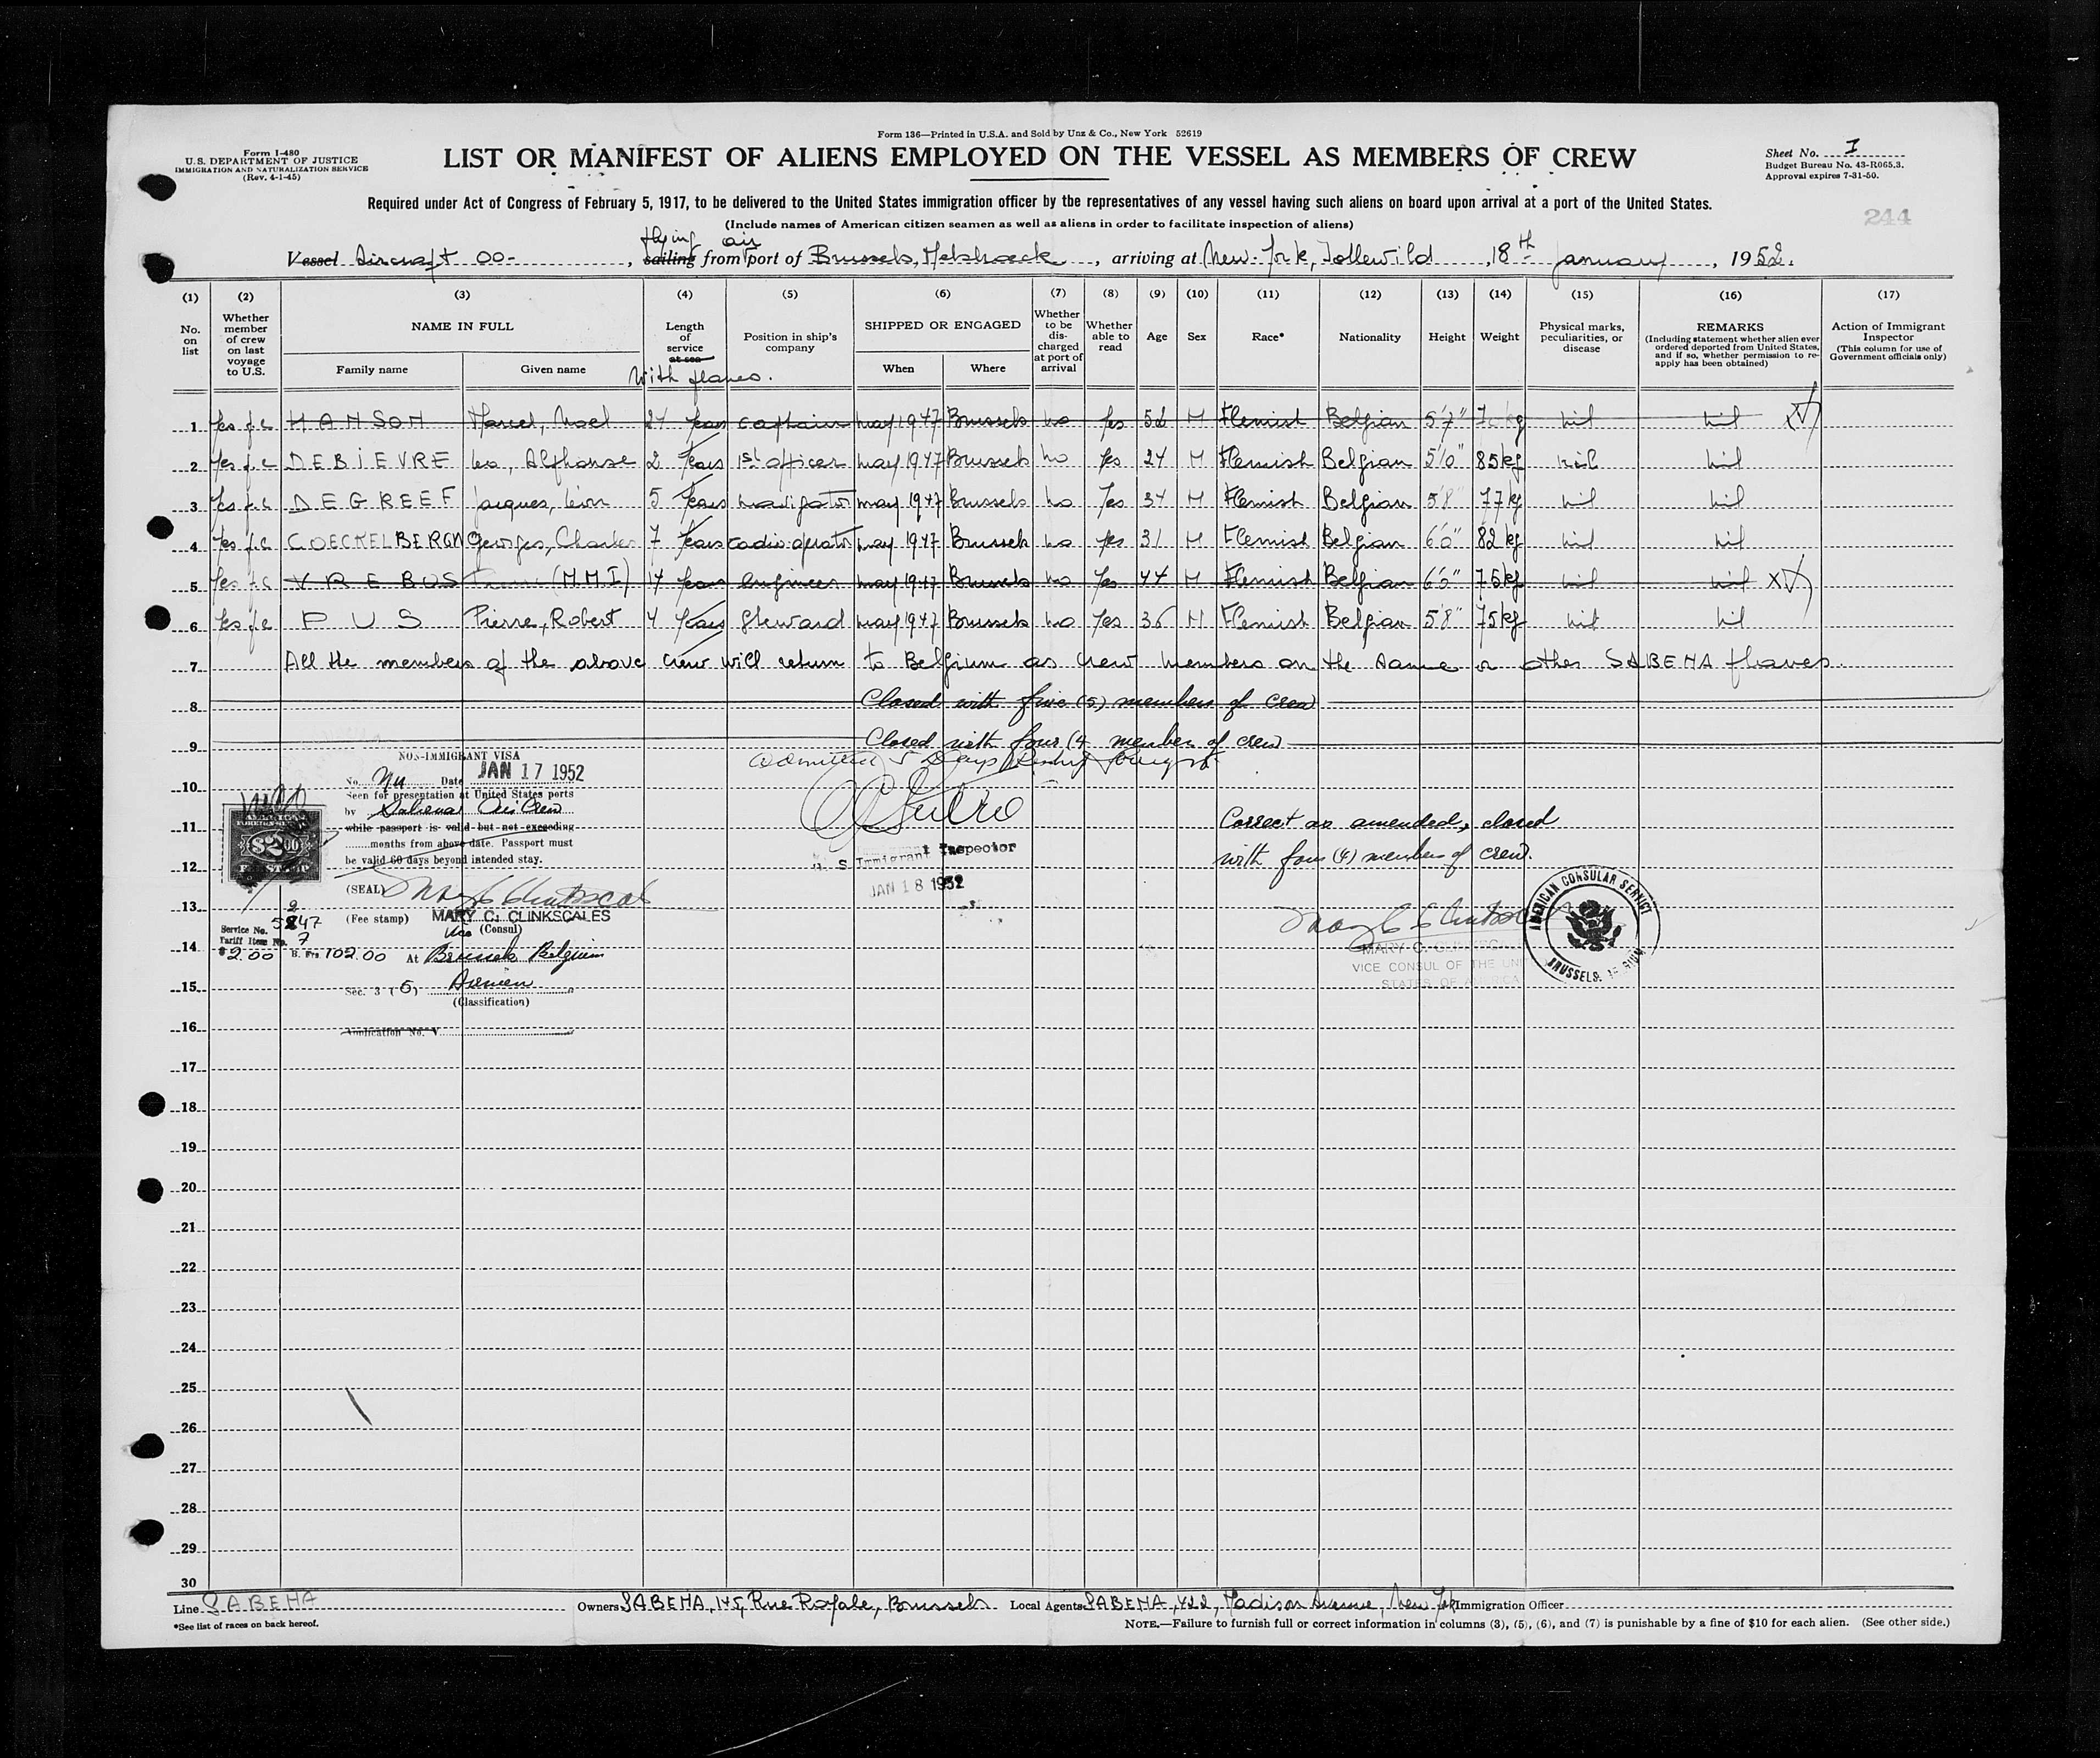 Form 136—Printed in U.S.A. and Sold by Unz & Co., New York 52619
Form I-480
U.S. DEPARTMENT OF JUSTICE
IMMIGRATION AND NATURALIZATION SERVICE
(Rev. 4-1-45)
LIST OR MANIFEST OF ALIENS EMPLOYED ON THE VESSEL AS MEMBERS OF CREW
Sheet No. I
Budget Bureau No. 43-R065.3.
Approval expires 7-31-50.
Required under Act of Congress of February 5, 1917, to be delivered to the United States immigration officer by the representatives of any vessel having such aliens on board upon arrival at a port of the United States.
244
(Include names of American citizen seamen as well as aliens in order to facilitate inspection of aliens)
flying air
Vessel Aircraft OO- , sailing from port of Brussels, Melsbroeck , arriving at New-York, Idlewild , 18th January , 1952.
(1) (2) (3) (4) (5) (6) (7) (8) (9) (10) (11) (12) (13) (14) (15) (16) (17)
No. on list
Whether member of crew on last voyage to U.S.
NAME IN FULL
Family name
Given name
Length of service at sea
With planes.
Position in ship's company
SHIPPED OR ENGAGED
When
Where
Whether to be discharged at port of arrival
Whether able to read
Age
Sex
Race*
Nationality
Height
Weight
Physical marks, peculiarities, or disease
REMARKS
(Including statement whether alien ever ordered deported from United States, and if so, whether permission to reapply has been obtained)
Action of Immigrant Inspector
(This column for use of Government officials only)
1 Yes f.c HANSON Marcel, Noel 24 Years captain may 1947 Brussels no Yes 52 M Flemish Belgian 5'7" kg nil nil
2 Yes f.c DEBIEVRE Leo, Alphonse 2 Years 1st officer may 1947 Brussels no Yes 24 M Flemish Belgian 5'10" 85kg nil nil
3 Yes f.c DEGREEF Jacques, Léon 5 Years navigator may 1947 Brussels no Yes 34 M Flemish Belgian 5'8" 77kg nil nil
4 Yes f.c COECKELBERGH Georges, Charles 7 Years radio operator may 1947 Brussels no Yes 31 M Flemish Belgian 6'0" 82 kg nil nil
5 Yes f.c VREBOS (M.M.I) 14 Years Engineer may 1947 Brussels no Yes 44 M Flemish Belgian 6'0" 75kg nil nil
6 Yes f.c PUS Pierre, Robert 4 Years Steward may 1947 Brussels no Yes 36 M Flemish Belgian 5'8" 75kg nil nil
7 All the members of the above crew will return to Belgium as crew members on the same or other SABENA planes.
8 Closed with five (5) members of crew
9 Closed with four (4 member of crew
NON-IMMIGRANT VISA
No. Date JAN 17 1952
Seen for presentation at United States ports
by Sabena Air Crew
while passport is valid but not exceeding
months from above date. Passport must
be valid 60 days beyond intended stay.
(SEAL)
(Fee stamp) MARY C. CLINKSCALES
Vice (Consul)
Service No. 5247
Tariff Item No. 7
$2.00 B. Frs. 102.00 At Brussels Belgium
Sec. 3 (5) Airmen
(Classification)
Application No. V
AMERICAN
$2.00
admitted 5 Days
U. S Immigrant Inspector
JAN 18 1952
Correct as amended, closed
with four (4) members of crew.
MARY C. CLINKSCALES
VICE CONSUL OF THE UNITED
STATES OF AMERICA
AMERICAN CONSULAR SERVICE
BRUSSELS, BELGIUM
10
11
12
13
14
15
16
17
18
19
20
21
22
23
24
25
26
27
28
29
30
Line SABENA Owners SABENA, 145, Rue Royale, Brussels Local Agents SABENA, 422, Madison Avenue, New York Immigration Officer
*See list of races on back hereof.
NOTE.—Failure to furnish full or correct information in columns (3), (5), (6), and (7) is punishable by a fine of $10 for each alien. (See other side.)